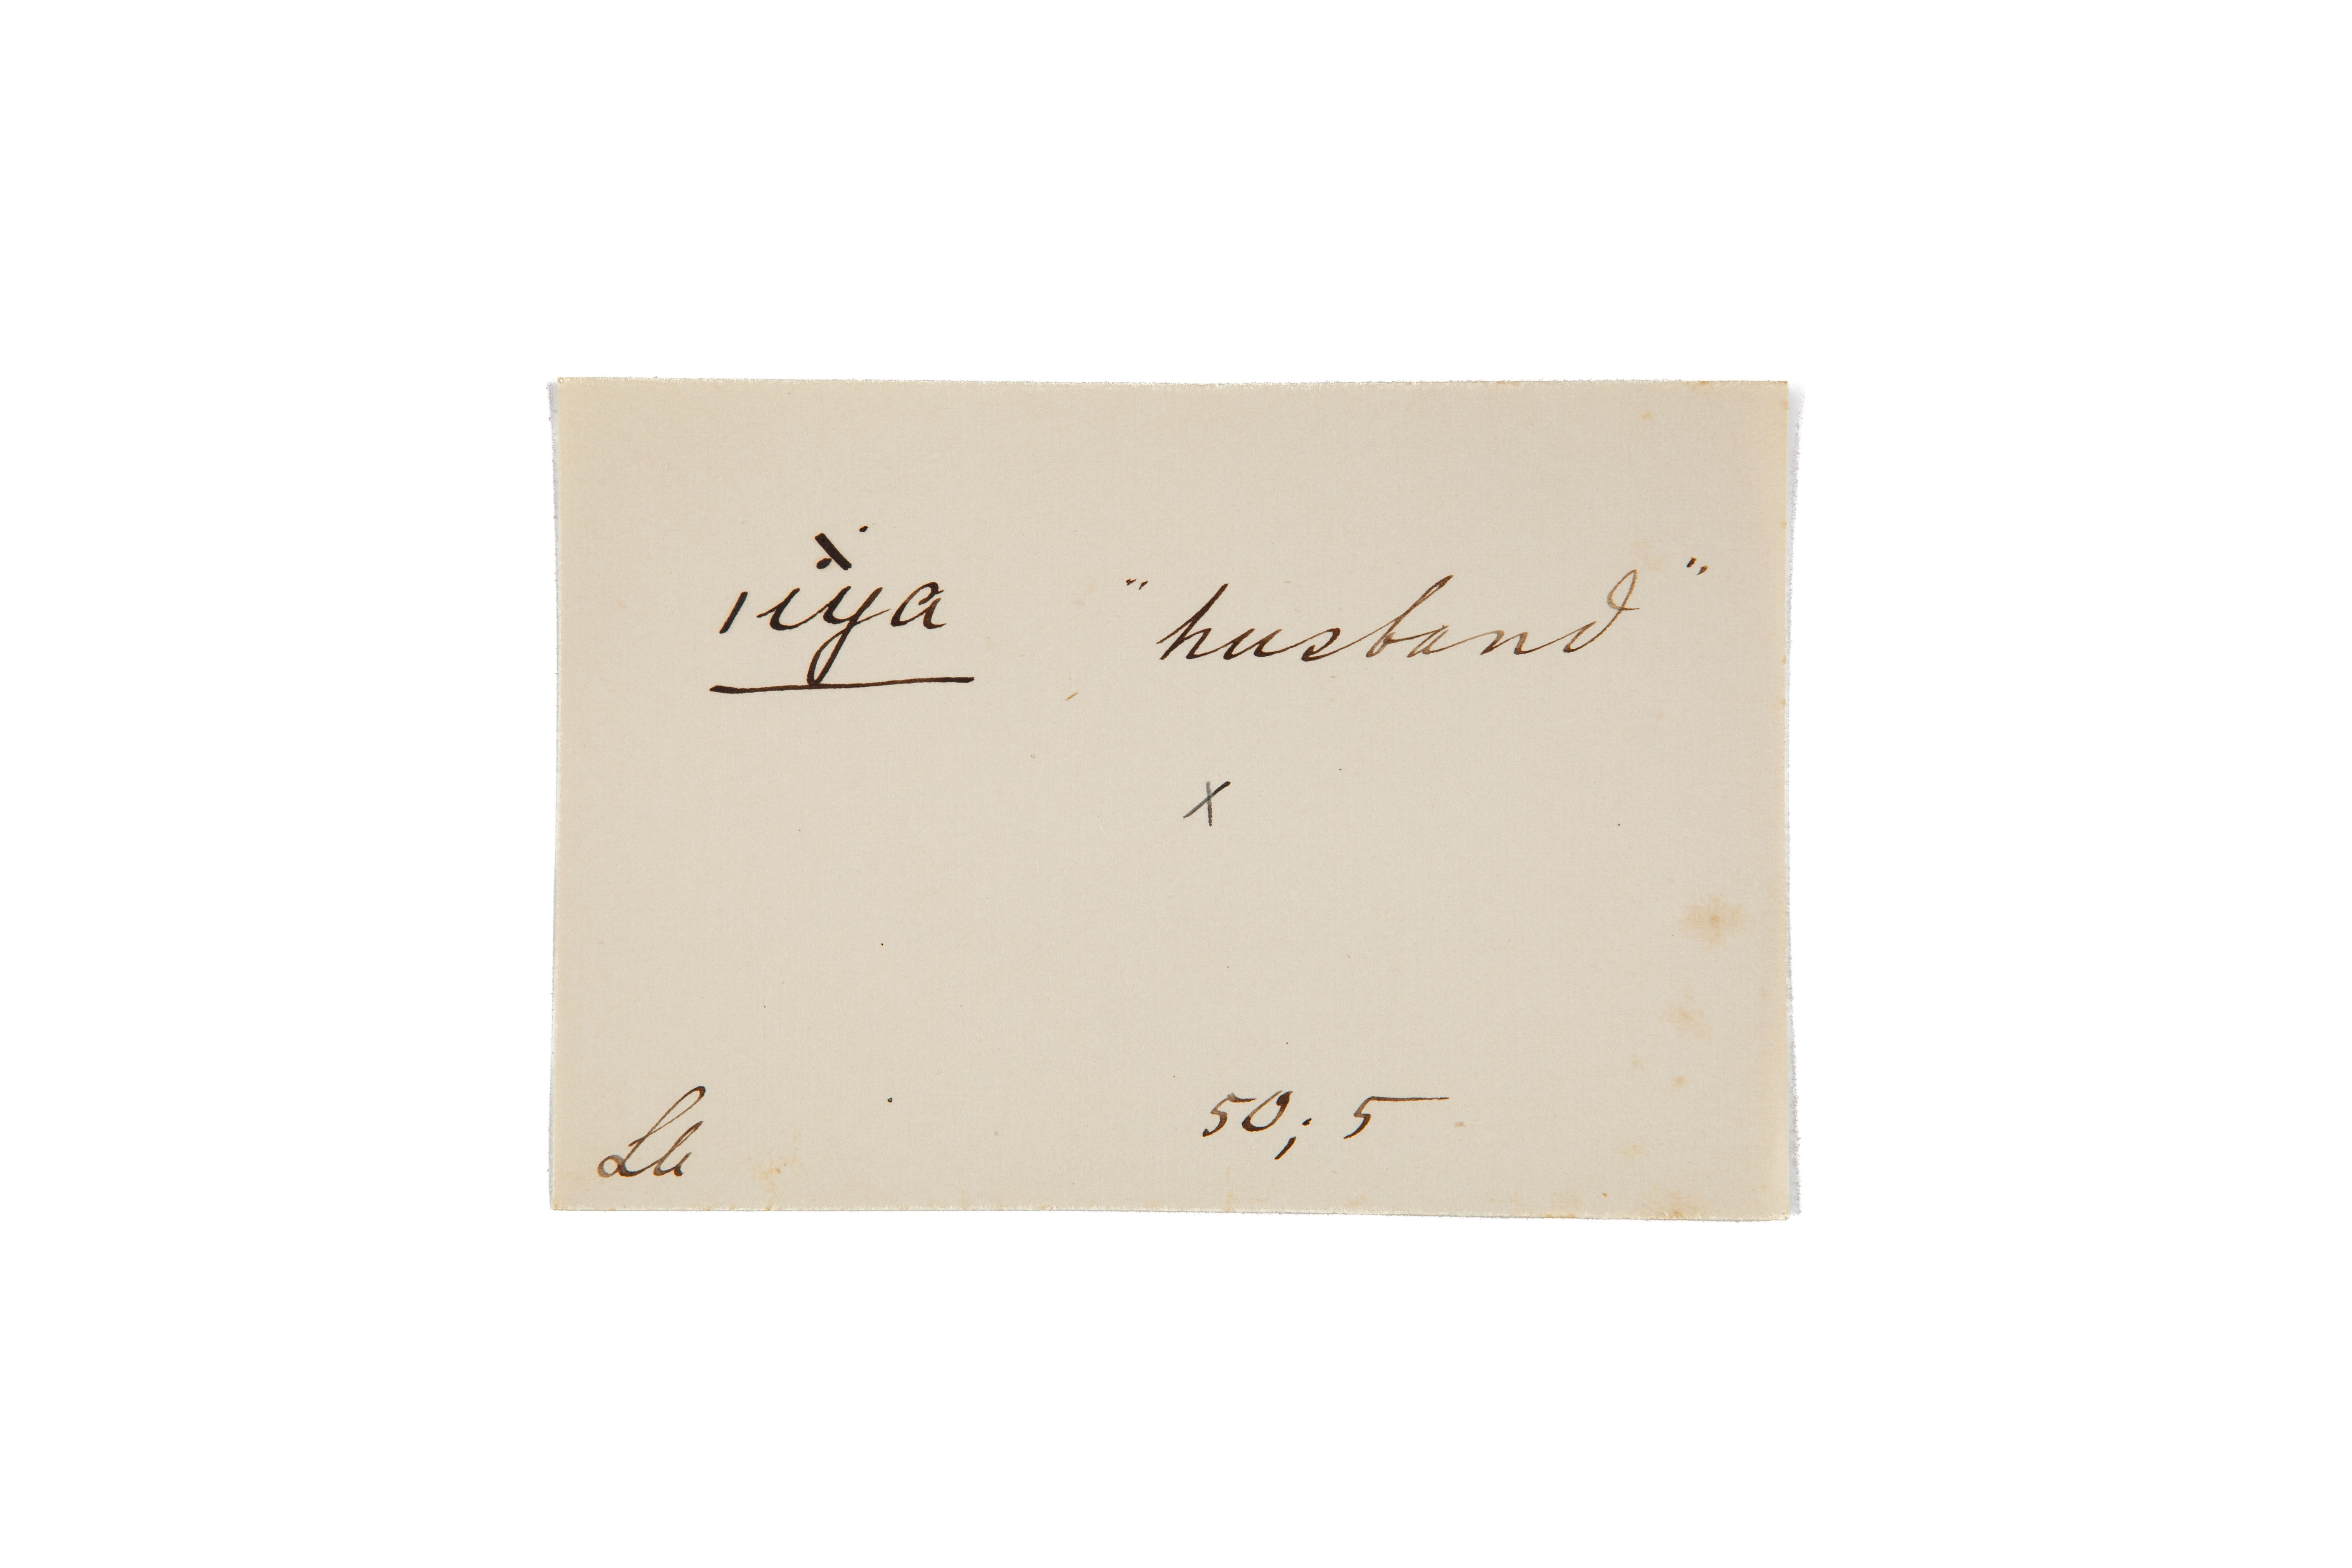 ǀìya "husband"
x
50; 5